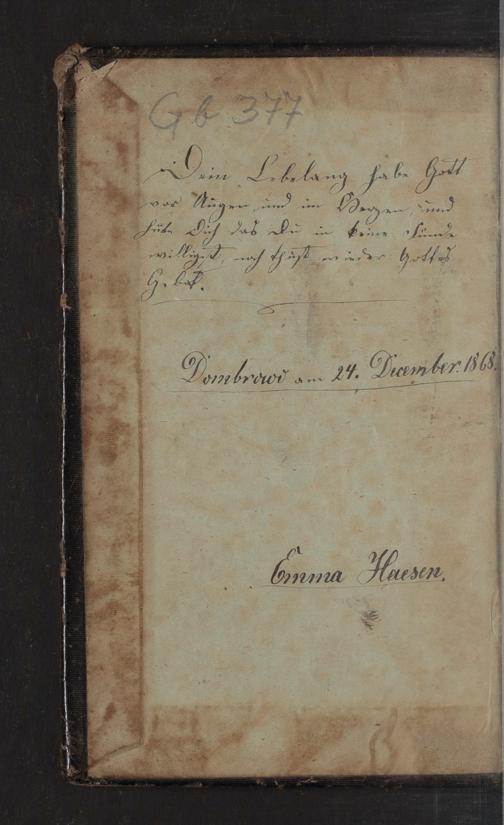 Gb 377
Dein Lebelang habe Gott
vor Augen und im Herzen, und
hüte Dich das Du in keine Sünde
willigst, noch thust wieder Gottes
Gebot.
Dombrowo am 24. December 1868.
Emma Haesen.